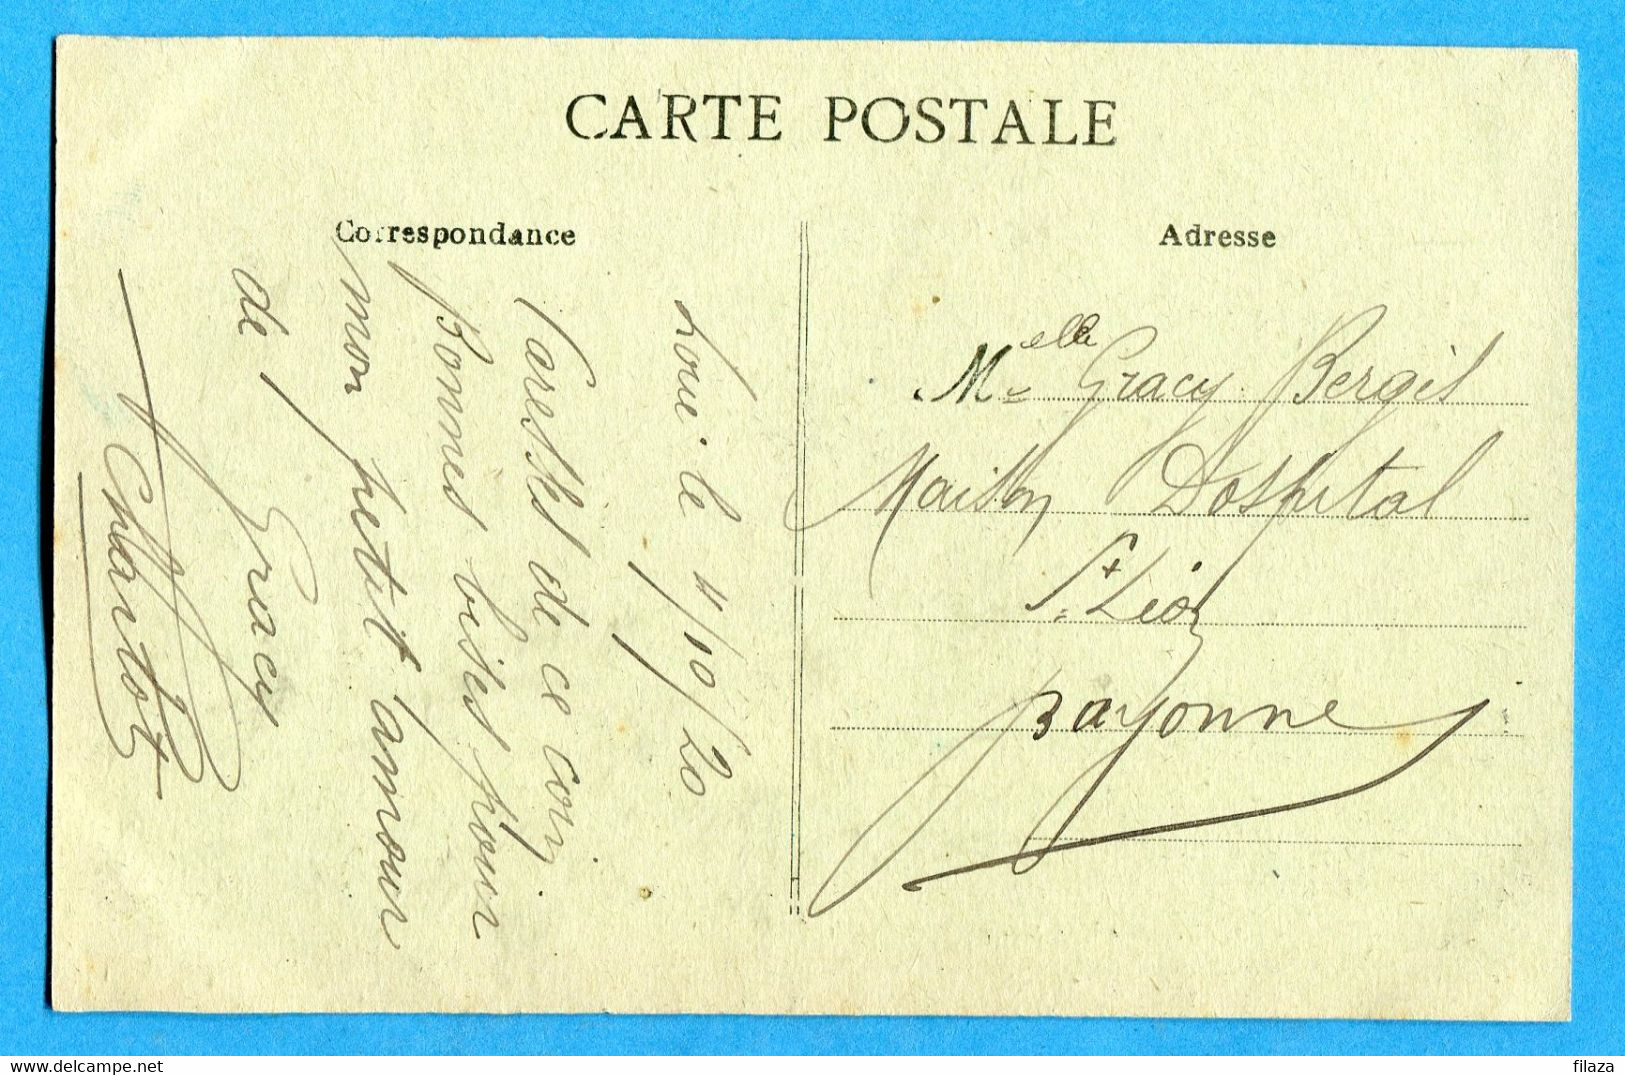 CARTE POSTALE
Correspondance
Adresse
le 4/10/20
Caresses de ce coin
Bonnes bises pour
mon petit amour
de Gracy
Charlot
Melle Gracy Bergès
Maison Dospital
St Léon
Bayonne
delcampe.net
filaza